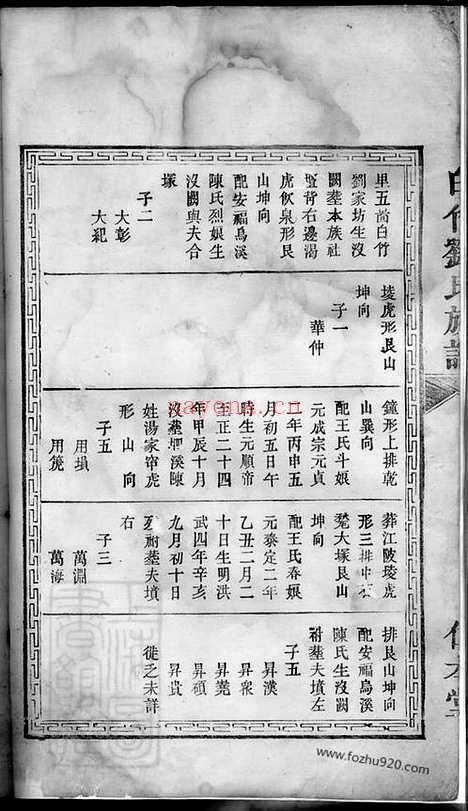 白竹劉氏族譜
里五啇白竹
劉家坊生沒
闕塟本族社
壂背右邊渴
虎飲泉形艮
山坤向
配安福烏溪
陳氏烈娘生
沒闕與夫合
塚
子二
大彰
大紀
堎虎形艮山
坤向
子一
華仲
鐘形上排乾
山巽向
配王氏斗娘
元成宗元貞
二年丙申五
月初五日午
時生元順帝
至正二十四
年甲辰十月
沒塟
溪陳
姓湯家帘虎
形山向
子五
用埙
用篪
葬江陂堎虎
形三排
大塚艮山
坤向
配王氏春娘
元泰定二年
乙丑二月二
十日生明洪
武四年辛亥
九月初十日
歿祔塟夫墳
右
子三
萬淵
萬海
排艮山坤向
配安福烏溪
陳氏生沒闕
祔塟夫墳左
子五
昇漢
昇衆
昇蕘
昇碩
昇貴
徙之未詳
nayena.com
www.fozhu920.com